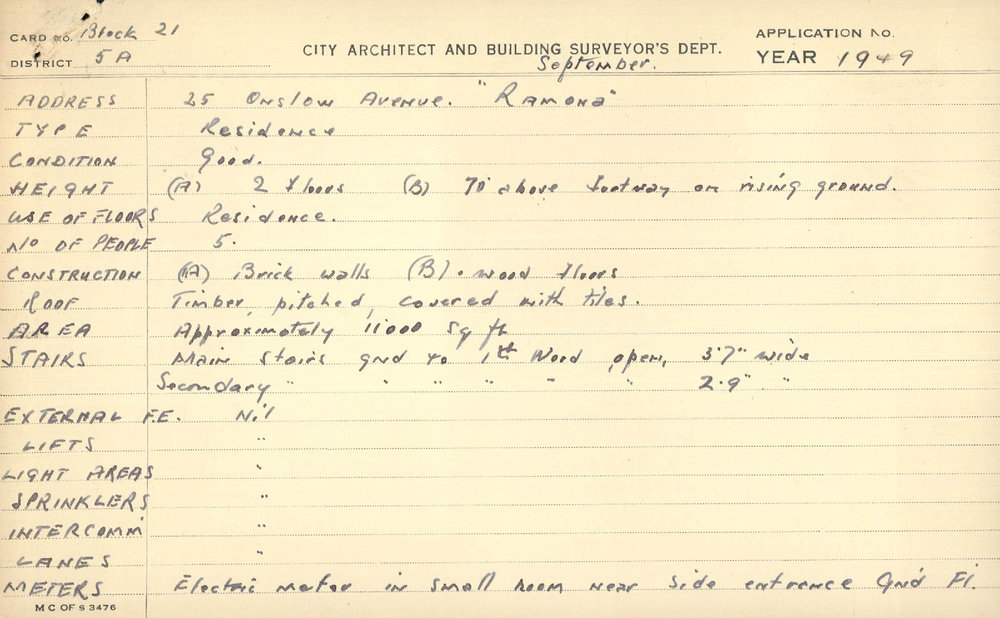 CARD NO. Block 21
CITY ARCHITECT AND BUILDING SURVEYOR'S DEPT.
APPLICATION NO.
DISTRICT 5A
September.
YEAR 1949
ADDRESS 25 Onslow Avenue. "Ramona"
TYPE Residence
CONDITION Good.
HEIGHT (A) 2 floors (B) 70' above footway on rising ground.
USE OF FLOORS Residence.
No OF PEOPLE 5.
CONSTRUCTION (A) Brick walls (B). wood floors
ROOF Timber, pitched, covered with tiles.
AREA Approximately 11000 sq ft
STAIRS Main Stairs gnd to 1st Wood, open, 3'7" wide
Secondary " " " " " " 2'9" "
EXTERNAL F.E. Nil
LIFTS "
LIGHT AREAS "
SPRINKLERS "
INTERCOMM "
LANES "
METERS Electric meter in small room near side entrance Gnd Fl.
M C OF S 3476